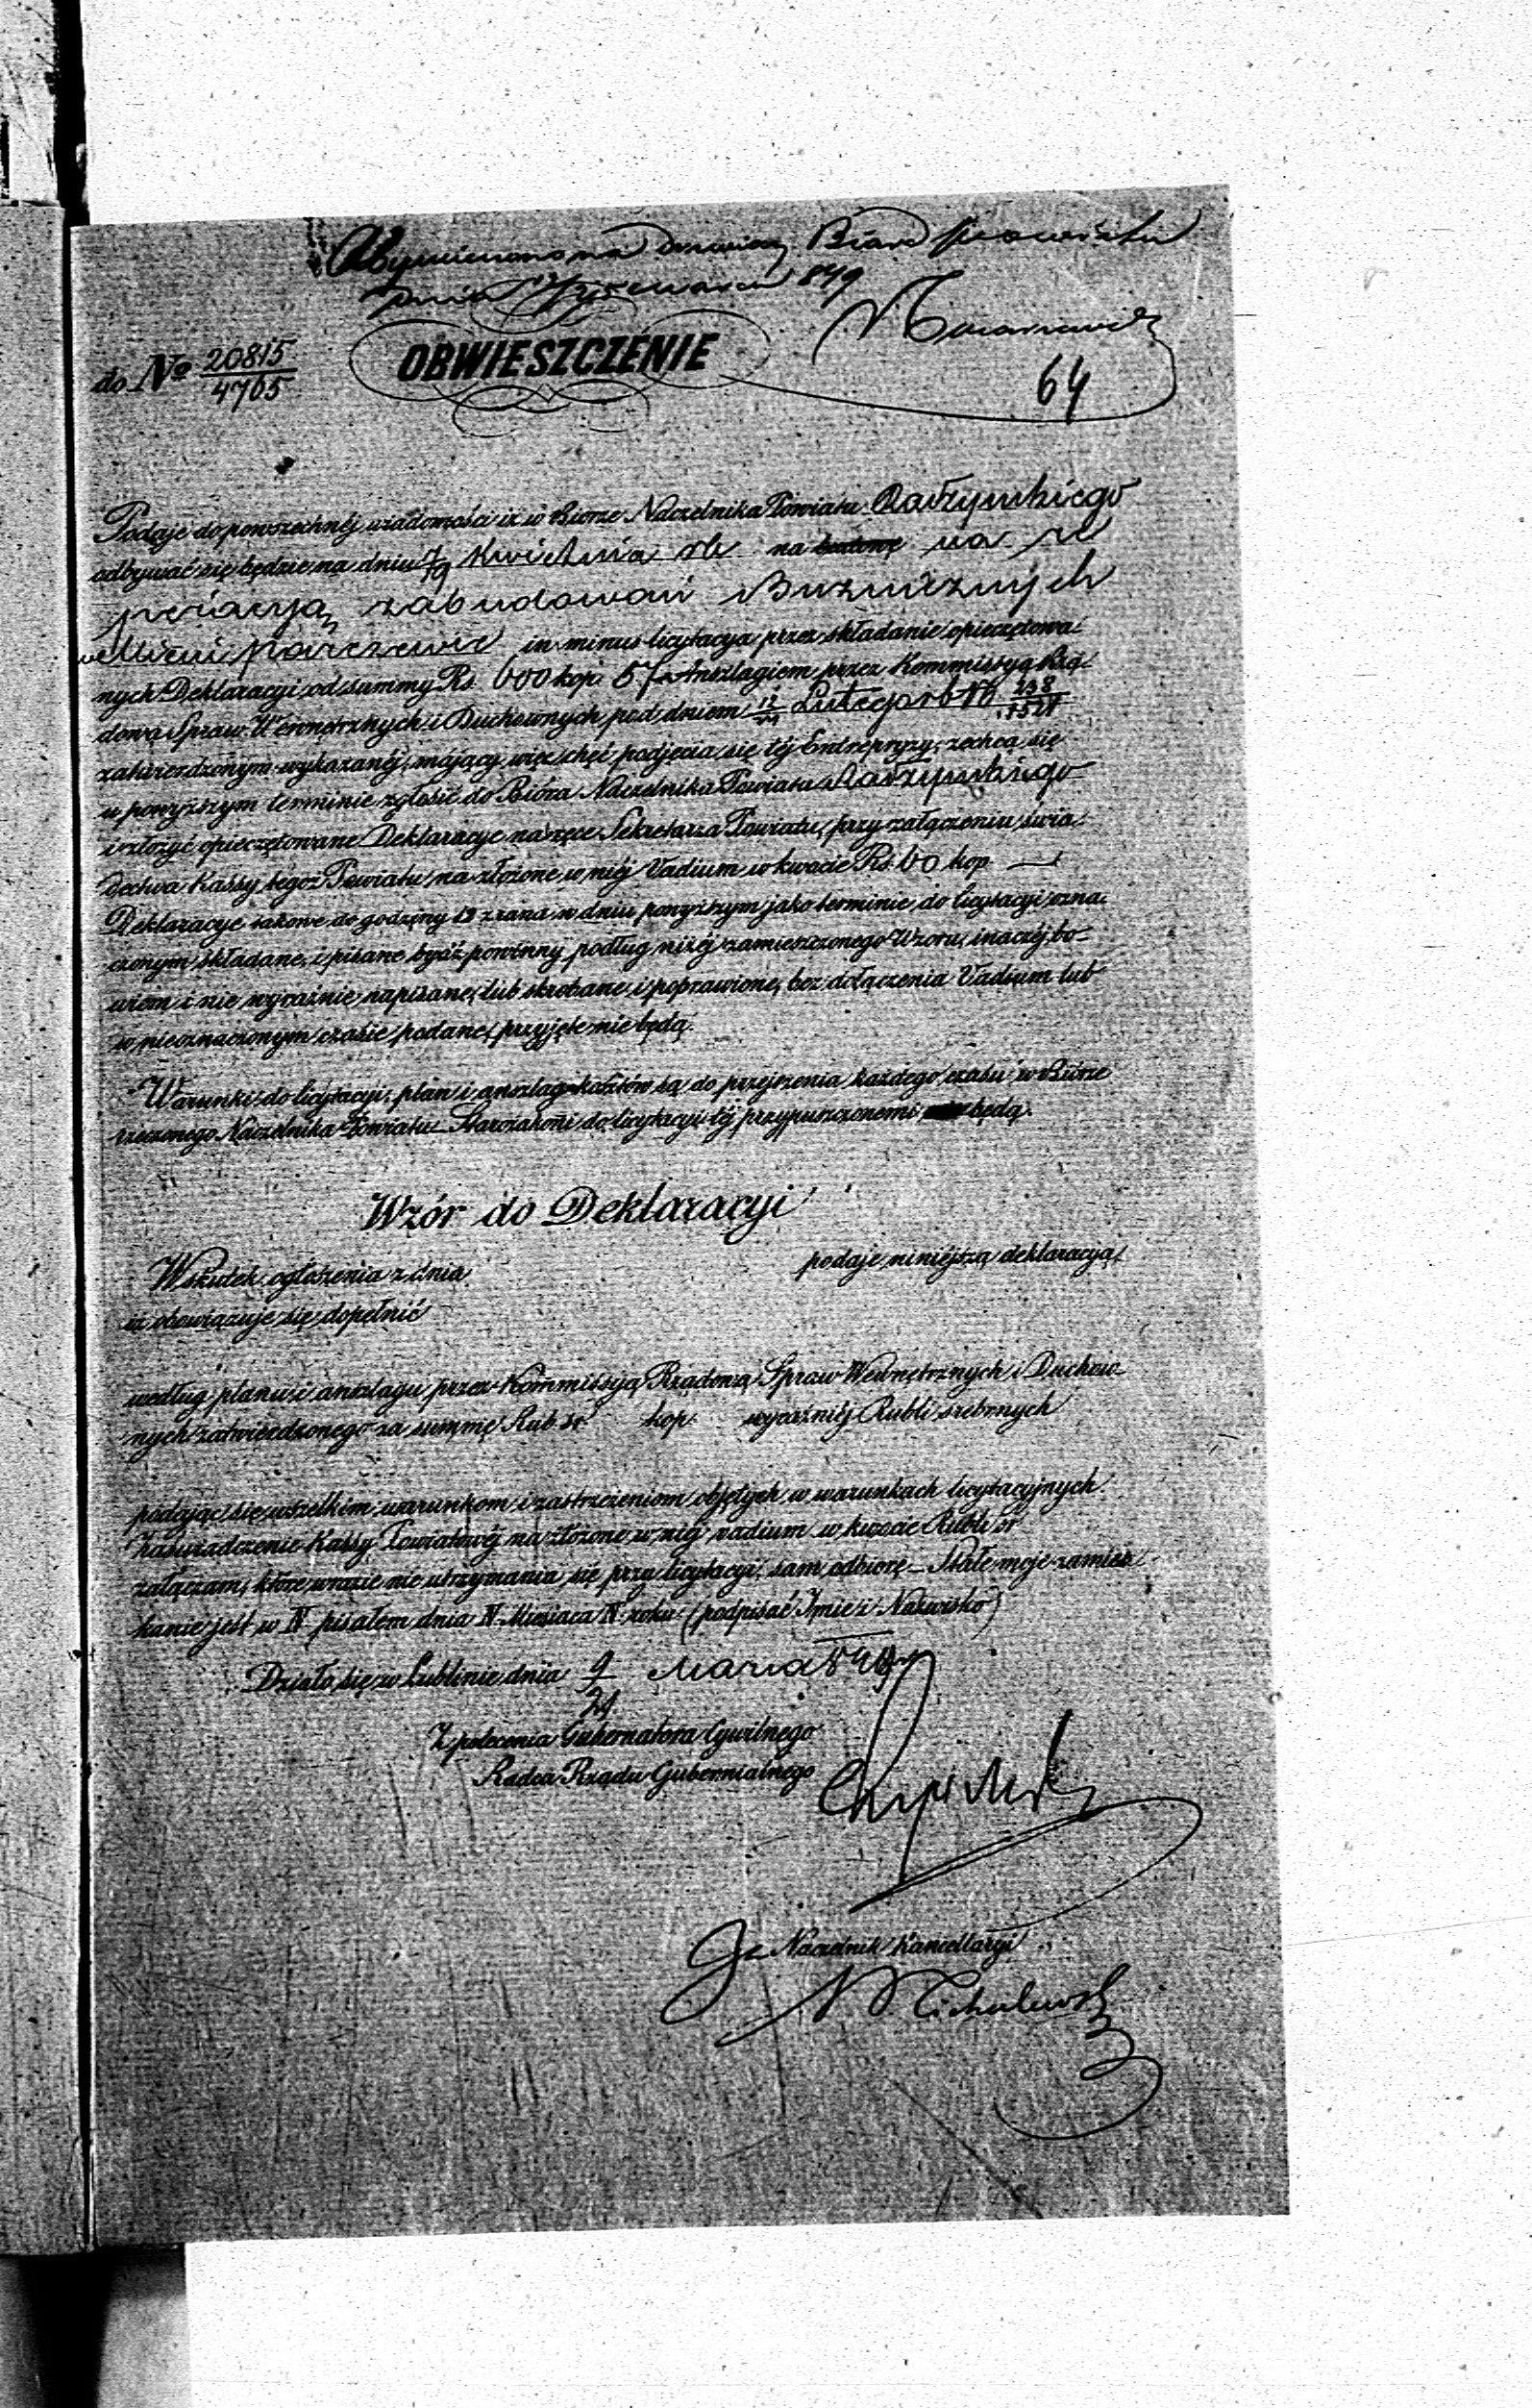 na drzwiach Biura Powiatu
dnia 849
OBWIESZCZENIE
do No 20815/4765
64
Podaje do powszechnéj wiadomości iż w Biórze Naczelnika Powiatu Radzyńskiego
odbywać się będzie na dniu 7/19 Kwietnia rb na budowę na re
peracyją zabudowań Bużniczných
w Mieście Parczewie in minus licytacya przez składanie opieczętowa
nych Deklaracyi od summy Rs. 600 kop. 57 Anszlagiem przez Kommissyą Rzą
dową Spraw Wewnętrznych i Duchownych pod dniem 12/24 Lutego rb N 238/1521
zatwierdzonym wykazanéj, mający więc chęć podjęcia się téj Entrepryzy, zechcą się
w powyższym terminie zgłosić do Bióra Naczelnika Powiatu Radzyńskiego
i złożyć opieczętowane Deklaracye na ręce Sekretarza Powiatu, przy załączeniu świa
dectwa Kassy tegoż Powiatu na złożone w niéj Vadium w kwocie Rs. 60 kop. —
Deklaracye takowe do godziny 12 z rana w dniu powyższym jako terminie do licytacyi ozna
czonym składane, i pisane bydź powinny podług niżéj zamieszczonego Wzoru, inaczéj bo-
wiem i nie wyraźnie napisane, lub skrobane i poprawione, bez dołączenia Vadium lub
w nieoznaczonym czasie podane, przyjęte nie będą.
Warunki do licytacyi, plan i anszlag kosztów są do przejrzenia każdego czasu w Biórze
rzeczonego Naczelnika Powiatu Starozakoni do licytacyi téj przypuszczonemi będą.
Wzór do Deklaracyi
Wskutek ogłoszenia z dnia podaje niniejszą deklaracyą,
iż obowiązuje się dopełnić
według planu i anszlagu przez Kommissyą Rządową Spraw Wewnętrznych i Duchow-
nych zatwierdzonego za summę Rub. sr kop. wyraźniéj Rubli srebrnych
poddając się wszelkim warunkom i zastrzeżeniom objętych w warunkach licytacyjnych.
Zaświadczenie Kassy Powiatowéj na złożone w niéj vadium w kwocie Rubli sr
załączam, które w razie nie utrzymania się przy licytacyi, sam odbiorę – Stałe moje zamiesz
kanie jest w N pisałem dnia N Miesiąca N roku (podpisać Imie i Nazwisko)
Działo się w Lublinie dnia 9/21 Marca 849 r
Z polecenia Gubernatora Cywilnego
Radca Rządu Gubernialnego
Naczelnik Kancellaryi
Michalewski